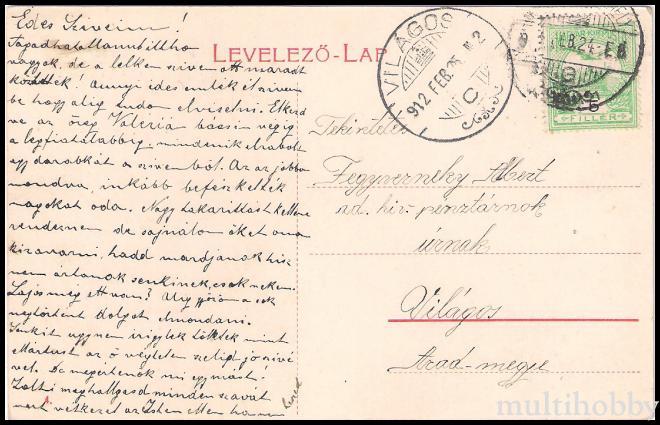 Édes Szíveim!
vagyok, de a lelkem szívem ott maradt
köztetek! Annyi ides emlék él szívem
be hogy alig tudom elviselni. Elkezd
ve az öreg Valéria bácsin végig
a legfiatalabbig mindenik elrabolt
egy darabkát a szívemből. Az az jobban
mondva, inkább befészkelték
magokat oda. Nagy takarítást kellene
rendeznem de sajnálom őket onnan
kizavarni, hadd mardjanak hisz
nem ártanak senkinek, csak nekem.
Lajos még ott van? Alig győzöm a sok
megtörtént dolgot elmondani.
Senkit ugy nem irigylek töltetek mint
Mártust az ő végtelen szelid jó szívé
vel. De megértenők mi egymást!
Zolti meghallgasd minden szavát
mert vétkezel az Isten ellen ha nem
LEVELEZŐ-LAP
VILÁGOS
912 FEB. 25
C
FEB. 24
FILLÉR
Tekintetes
Fegyverneky Albert
ad. hiv. pénztárnok
úrnak
Világos
Arad-megye
multihobby